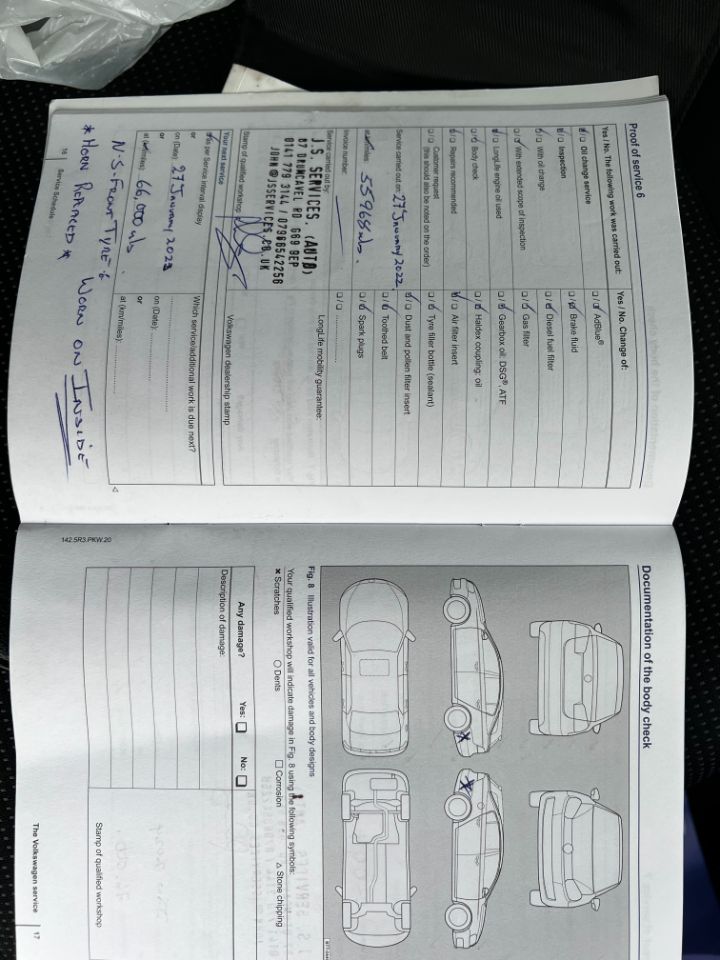 Proof of service 6
Yes / No. The following work was carried out:
Oil change service
Inspection
With oil change
With extended scope of inspection
LongLife engine oil used
Body check
Repairs recommended
Customer request
(this should also be noted on the order)
Yes / No. Change of:
AdBlue®
Brake fluid
Diesel fuel filter
Gas filter
Gearbox oil: DSG®, ATF
Haldex coupling: oil
Air filter insert
Tyre filler bottle (sealant)
Dust and pollen filter insert
Toothed belt
Spark plugs
Service carried out on: 27 January 2022
at km/miles: 55968 mls.
Invoice number:
Service carried out by:
J.S. SERVICES. (AUTO)
87 DRUMCAVEL RD G69 9EP
0141 779 3144 / 07986542256
JOHN@JSSERVICES.CO.UK
Stamp of qualified workshop
LongLife mobility guarantee:
Volkswagen dealership stamp
Your next service
as per Service interval display
or
on (Date): 27 January 2023
or
at km/miles: 66,000 mls
Which service/additional work is due next?
on (Date):
or
at (km/miles):
N-S-Front Tyre-6 Worn on Inside
* Horn Replaced *
16 Service Schedule
Documentation of the body check
Fig. 8 Illustration valid for all vehicles and body designs
Your qualified workshop will indicate damage in Fig. 8 using the following symbols:
× Scratches ○ Dents □ Corrosion △ Stone chipping
Any damage? Yes: No:
Description of damage:
Stamp of qualified workshop
142.5R3.PKW.20
The Volkswagen service 17